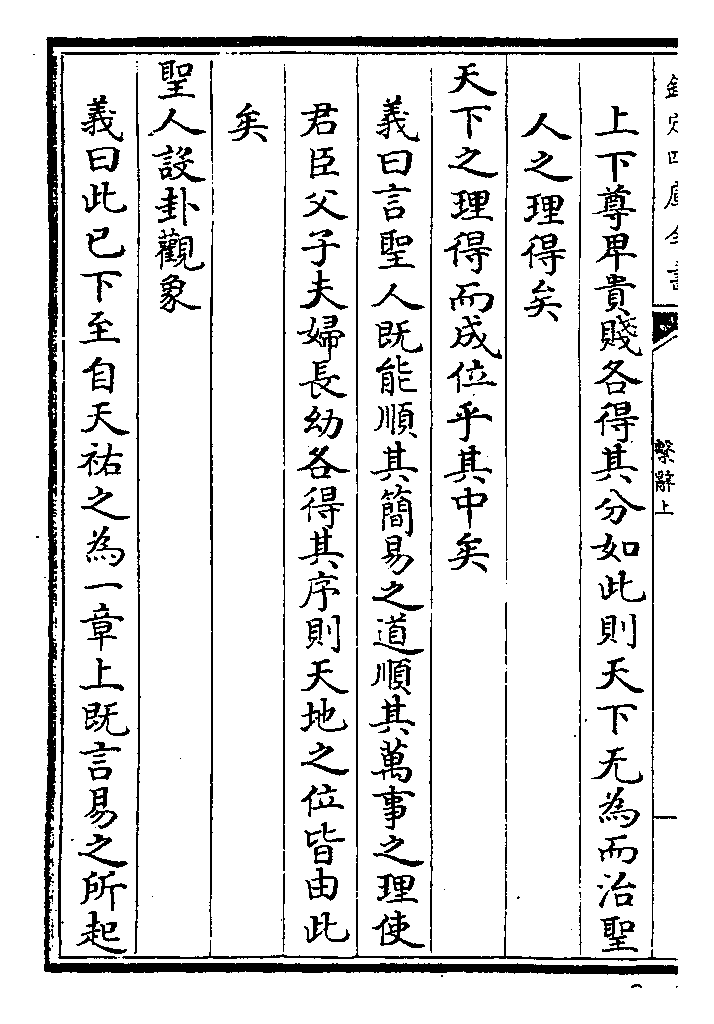 欽定四庫全書
繫辭上
上下尊卑貴賤各得其分如此則天下无為而治聖
人之理得矣
天下之理得而成位乎其中矣
義曰言聖人既能順其簡易之道順其萬事之理使
君臣父子夫婦長幼各得其序則天地之位皆由此
矣
聖人設卦觀象
義曰此已下至自天祐之為一章上既言易之所起